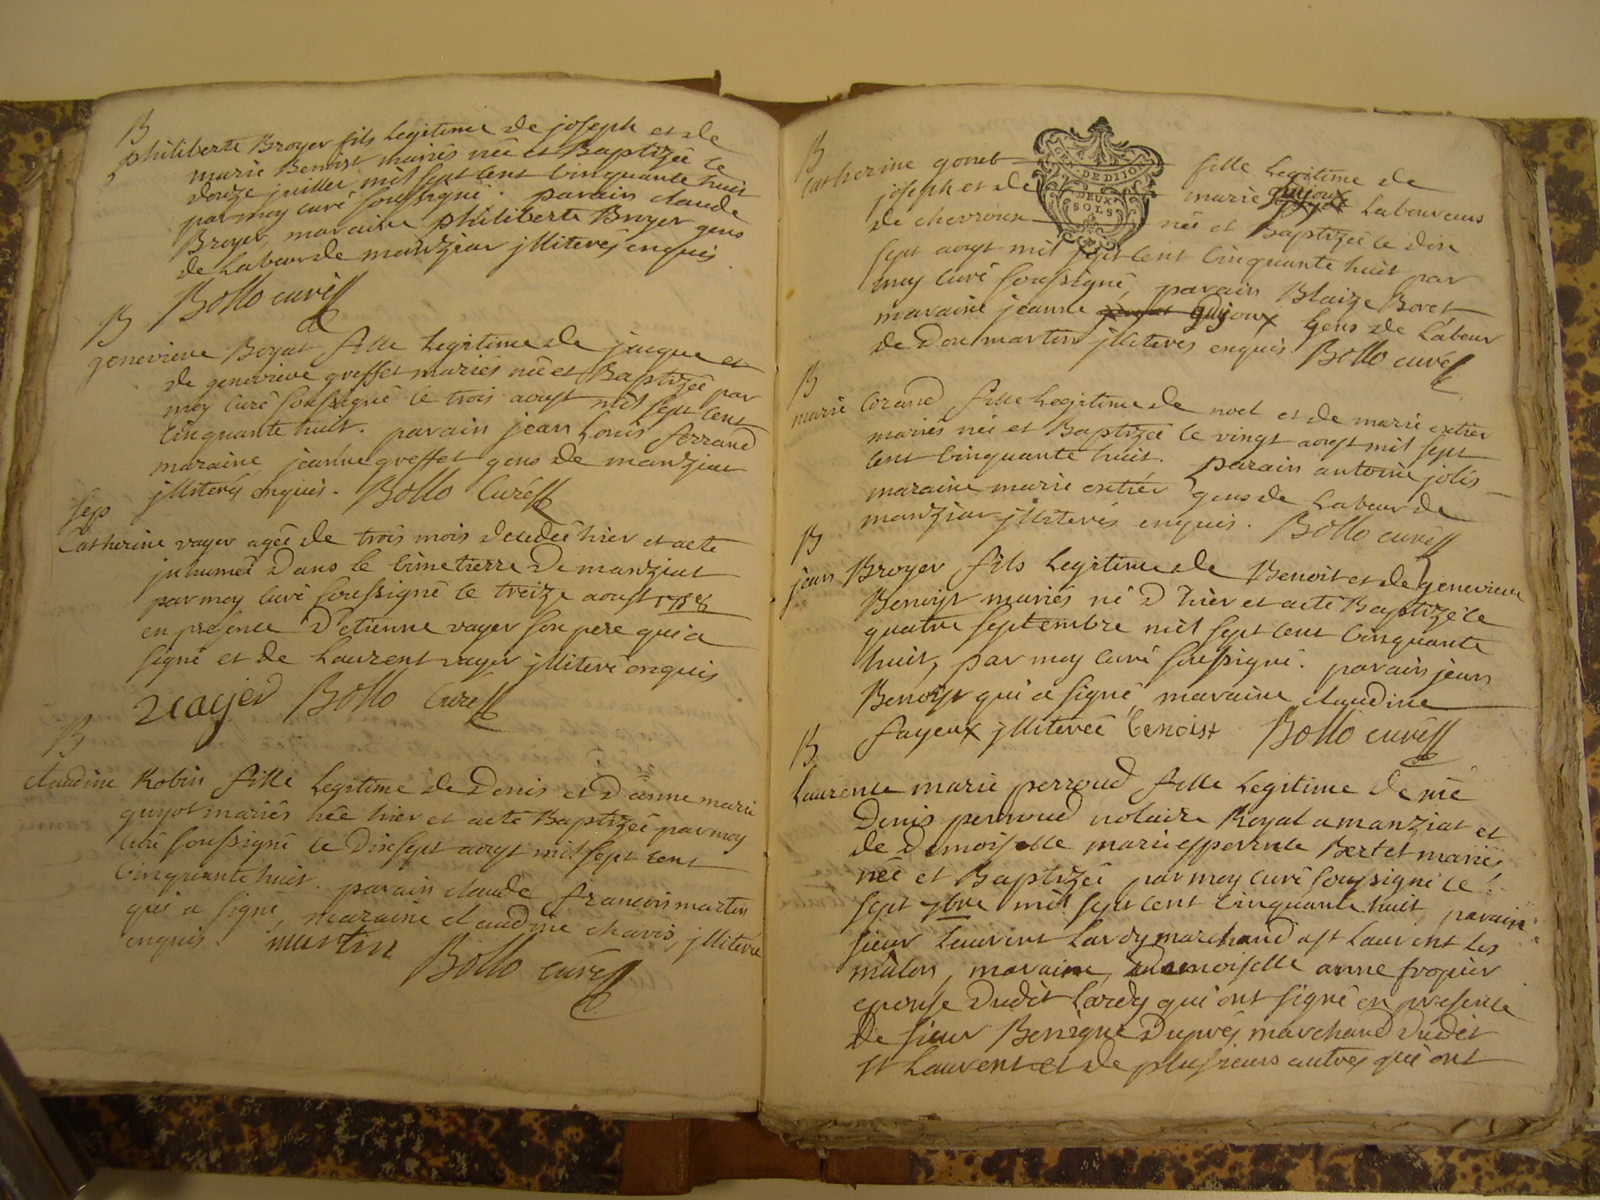 B
philiberte Broyer fils legitime de joseph et de
marie Benoist mariés née et Baptizée le
douze juillet mil sept cent cinquante huit
par moy curé soussigné. parain claude
Broyer, maraine philiberte Broyer gens
de labeur de manziat jlliterés enquis.
Bollo curé
B
genevieve Boyat fille legitime de jacque et
de genevieve greffet mariés née et Baptizée par
moy curé soussigné le trois aoust mil sept cent
cinquante huit. parain jean Louis ferrand
maraine jeanne greffet gens de manziat
jlliterés enquis. Bollo Curé
Sep
Catherine vayer agée de trois mois decedée hier et acte
jnhumée dans le cimetierre de manziat
par moy curé soussigné le treize aoust 1758
en presence d'etienne vayer son pere qui a
signé et de Laurent vayer jlliteré enquis
vayer Bollo Curé
B
claudine Robin fille legitime de Denis et d'anne marie
guyot mariés née hier et acte Baptizée par moy
curé soussigné le dixsept aoust mil sept cent
cinquante huit. parain claude francois martin
qui a signé, maraine claudine chavis, jlliterée
enquis. martin Bollo curé
B
Catherine gonet fille legitime de
joseph et de marie guijoux Laboureurs
de chevroux née et Baptizée le dix
sept aoust mil sept cent cinquante huit par
moy curé soussigné, parain Blaize Boret
maraine jeanne guijoux gens de labeur
de Donmartin jlliterés enquis Bollo curé
GEN. DE DIJON
DEUX
SOLS
B
marie Corand fille legitime de noel et de marie extier
mariés née et Baptizée le vingt aoust mil sept
cent cinquante huit. parain antoine jolis
maraine marie extier gens de labeur de
manziat jlliterés enquis. Bollo curé
B
jean Broyer fils legitime de Benoit et de genevieve
Benoist mariés né d'hier et acte Baptizé le
quatre septembre mil sept cent cinquante
huit, par moy curé soussigné. parain jean
Benoist qui a signé, maraine claudine
fayeux jlliterée benoist Bollo curé
B
Laurence marie perroud fille legitime de me
Denis perroud notaire Royal a manziat et
de Demoiselle marie esperence Bertet mariés
née et Baptizée par moy curé soussigné le
sept 7bre mil sept cent cinquante huit, parain
sieur Laurent Lardy marchand a st Laurent les
mâcon, maraine, demoiselle anne froquier
epouse dudit Lardy qui ont signé en presence
de sieur Benigne Duprés marchand dudit
st Laurent et de plusieurs autres qui ont